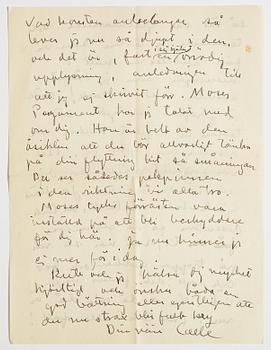 Vad konsten anbelangar, så
lever jag nu så djupt i den.
och det är, fast en själfklar onödig
upplysning, anledningen till
att jag ej skrivit förr. Moses
Pergament har jag talat med
om dig. Han är helt av den
åsikten att du bör allvarligt tänka
på din flyttning hit så småningom
Du ser således pekpinnen
i den riktning vi alla tro.
Moses tycks förresten vara
inställd på att bli beskyddare
för dig här. Ja nu hinner jag
ej mer för i dag.
Ruth och jag hälsa dig mycket
hjärtligt och önska båda en
god bättring eller egentligen att
du nu strax blir frisk
Din vän Calle